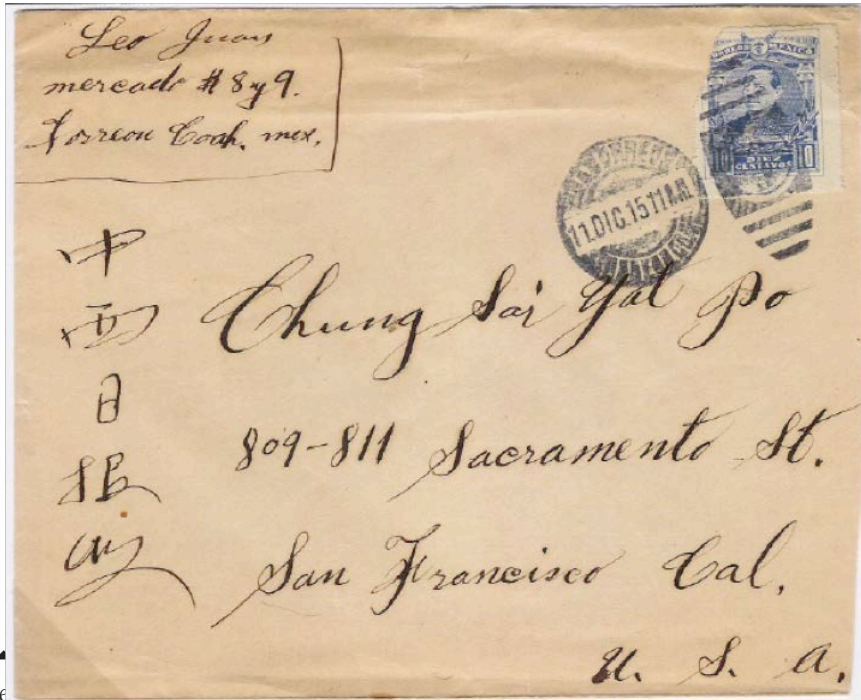 Leo Juan
mercado # 8 y 9.
Torreon Coah. mex.
CORREOS MEXICO
10 DIEZ CENTAVOS 10
CORREOS
11.DIC.15 11 AM
中西日报
Chung Sai Yat Po
809-811 Sacramento St.
San Francisco Cal.
U. S. A.